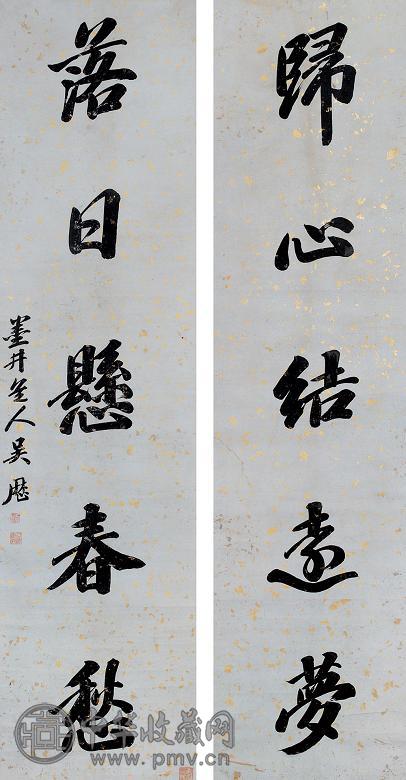 歸心結遠夢
落日懸春愁
墨井道人吳歷
中华收藏网
www.pmv.cn